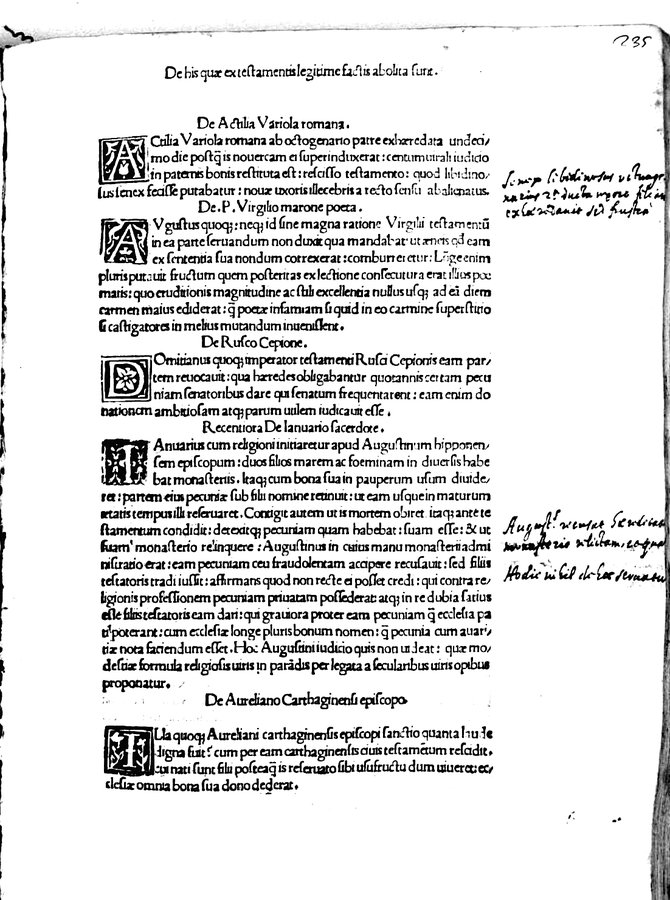 235
De his quæ ex testamentis legitime factis abolita sunt.
De Actilia Variola romana.
ACtilia Variola romana ab octogenario patre exhæredata undeci/
mo die postq̃ is nouercam ei superinduxerat: centumuirali iudicio
in paternis bonis restituta est: rescisso testamento: quod libidino/
sus senex fecisse putabatur: nouæ uxoris illecebris a recto sensu abalienatus.
De.P. Virgilio marone poeta.
AVgustus quoq; neq; id sine magna ratione Virgilii testamentũ
in ea parte seruandum non duxit qua mandabat ut æneis qđ eam
ex sententia sua nondum correxerat: combureretur: Lõge enim
pluris putauit fructum quem posteritas ex lectione consecutura erat illius poe
matis: quo eruditionis magnitudine ac stili excellentia nullus usq; ad eã diem
carmen maius ediderat: q̃ poetæ infamiam si quid in eo carmine superstitio
si castigatores in melius mutandum inuenissent.
De Rusco Cepione.
DOmitianus quoq; imperator testamenti Rusci Cepionis eam par/
tem reuocauit: qua hæredes obligabantur quotannis certam pecu
niam senatoribus dare qui senatum frequentarent: eam enim do
nationem ambitiosam atq; parum utilem iudicauit esse.
Recentiora De Ianuario sacerdote.
IAnuarius cum religioni initiaretur apud Augustinum hipponen/
sem episcopum: duos filios marem ac foeminam in diuersis habe
bat monasteriis. Itaq; cum bona sua in pauperum usum diuide/
ret: partem eius pecuniæ sub filii nomine retinuit: ut eam usque in maturum
ætatis tempus illi referuaret. Contigit autem ut is mortem obiret itaq; ante te
stamentum condidit: detexitq; pecuniam quam habebat: suam esse: & ut
suam monasterio relinquere: Augustinus in cuius manu monasterii admi
nistratio erat: eam pecuniam ceu fraudolentam accipere recusauit: sed filiis
testatoris tradi iussit: affirmans quod non recte ei posset credi: qui contra re/
ligionis professionem pecuniam priuatam possederat: atq; in re dubia satius
esse filiis testatoris eam dari: qui grauiora propter eam pecuniam q̃ ecclesia pa
ti poterant: cum ecclesiæ longe pluris bonum nomen: q̃ pecunia cum auari/
tiæ nota faciendum esset. Hoc Augustini iudicio quis non uideat: quæ mo/
destiæ formula religiosis uiris in parãdis per legata a secularibus uiris opibus
proponatur.
De Aureliano Carthaginensi episcopo
ILla quoq; Aureliani carthaginensis episcopi sanctio quanta laude
digna fuit? cum per eam carthaginensis ciuis testamẽtum rescidit.
cui nati sunt filii posteaq̃ is reseruato sibi usufructu dum uiueret: ec/
clesiæ omnia bona sua dono dederat.
Senex libidinosus
sed frustra
August.s recusat
monasterio relictam
Hodie nihil